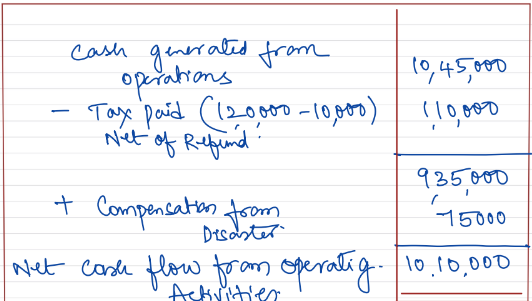 Cash generated from
operations 10,45,000
- Tax paid (120,000 - 10,000) 110,000
Net of Refund.
935,000
+ Compensation from 75000
Disaster
Net cash flow from operatig. 10,10,000
Activities